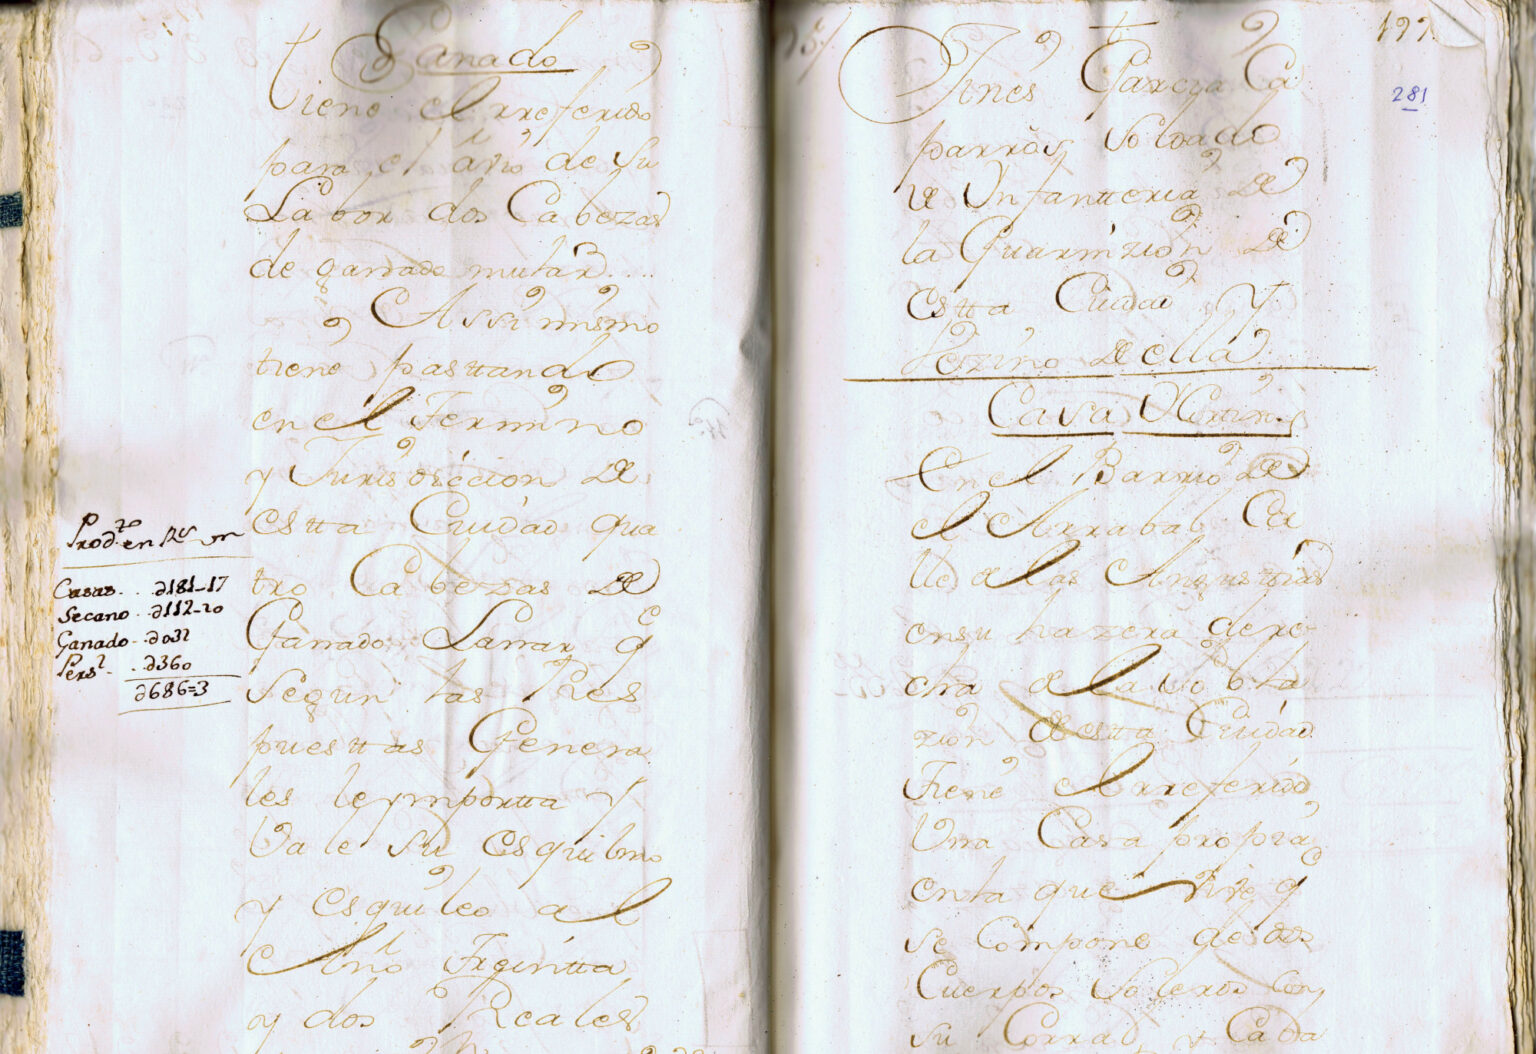 Ganado
tiene el rreferido
para el año de su
Labor dos Cabezas
de ganado mular....
Assimismo
tiene pasttando
en el Termino
y Jurisdiccion de
estta Ciudad qua
tro Cabezas de
Ganado Lanar q^e
segun las Res
puesttas Genera
les le ymportta y
Vale su esquilmo
y esquileo al
Año treintta
y dos Reales
Prod.^to en R^s vn
Casas... ∂181-17
Secano.. ∂112-20
Ganado-. ∂032
Pers^l.. ∂360
∂686=3
199
281
Jines Garcia Ca
parròs Soldado
de Ynfantteria de
la Guarnizion de
Estta Ciudad y
Vezino de ella
Casa
En el Barrio de
el Arrabal Ca
lle de las Angusttias
en su hazera dere-
cha de la Pobla
zion de estta Ciudad
Tiene el rreferido
Una Casa propia
en la que vive q^e
se Compone de dos
Cuerpos Soleros Con
su Corral y Cada